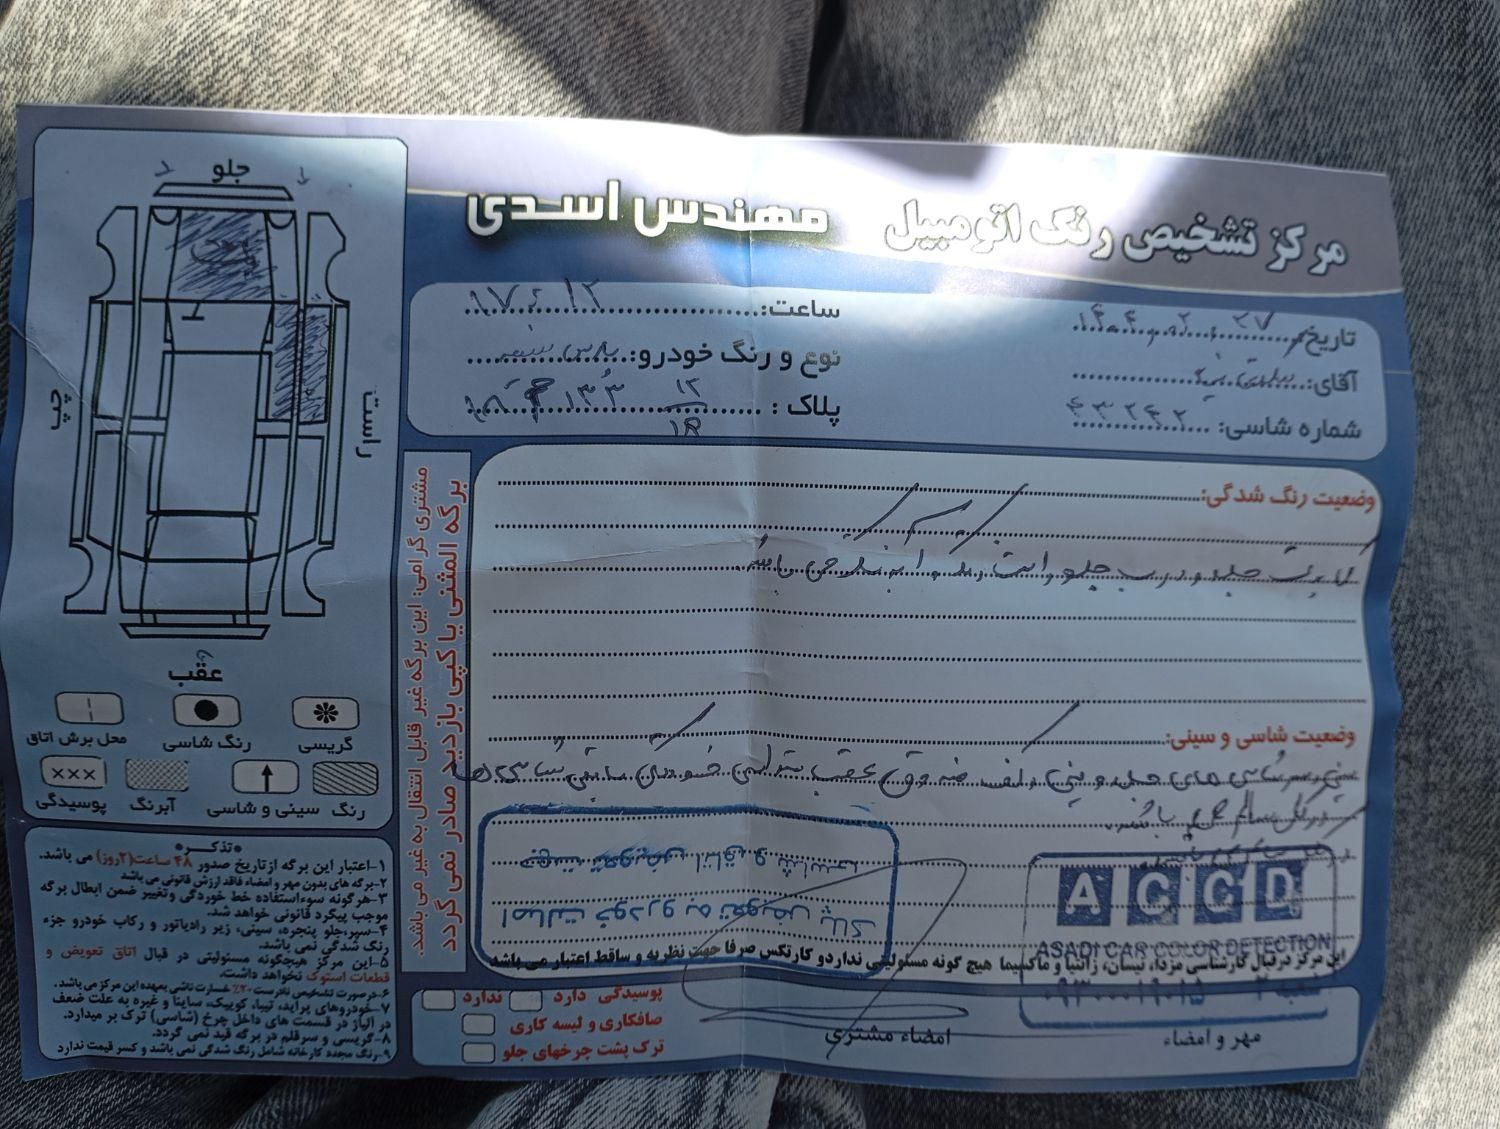 مرکز تشخیص رنگ اتومبیل
مهندس اسدی
تاریخ: ۱۴۰۴،۰۲،۲۷
ساعت: ۱۷،۱۲
آقای:
نوع و رنگ خودرو: پارس سفید
شماره شاسی: ۴۳۲۴۲
پلاک: ۱۲
۱۳۳
وضعیت رنگ شدگی:
کاپوت جلو و درب جلو راست رنگ و آبرنگ می باشد.
وضعیت شاسی و سینی:
سینی سرشاسی های جلو و کف صندوق عقب ستون
سالم می باشد.
جهت تعویض اتاق و شاسی
اصالت خودرو به تعویض پلاک
ACCD
ASADI CAR COLOR DETECTION
این مرکز در قبال کارشناسی مزدا، نیسان، زانتیا و ماکسیما هیچ گونه مسئولیتی ندارد و کارتکس صرفا جهت نظریه و ساقط اعتبار می باشد
شعبه ۲
مهر و امضاء
امضاء مشتری
پوسیدگی دارد ندارد
صافکاری و لیسه کاری
ترک پشت چرخهای جلو
مشتری گرامی: این برگه غیر قابل انتقال به غیر می باشد.
برگه المثنی یا کپی بازدید صادر نمی گردد
جلو
چپ
راست
عقب
گریسی
رنگ شاسی
محل برش اتاق
رنگ
سینی و شاسی
آبرنگ
xxx
پوسیدگی
•تذکر•
۱-اعتبار این برگه از تاریخ صدور ۴۸ ساعت(۲روز) می باشد.
۲-برگه های بدون مهر و امضاء فاقد ارزش قانونی می باشد
۳-هرگونه سوءاستفاده خط خوردگی وتغییر ضمن ابطال برگه
موجب پیگرد قانونی خواهد شد.
۴-سپرجلو پنجره، سینی، زیر رادیاتور و رکاب خودرو جزء
رنگ شدگی نمی باشد.
۵-این مرکز هیچگونه مسئولیتی در قبال اتاق تعویض و
قطعات استوک نخواهد داشت.
۶-در صورت تشخیص نادرست ۲۰٪ خسارت ناشی بعهده این مرکز می باشد.
۷-خودروهای پراید، تیبا، کوییک، ساینا و غیره به علت ضعف
در آلیاژ در قسمت های داخل چرخ (شاسی) ترک بر میدارد.
۸-گریسی و سرقلم در برگه قید نمی گردد.
۹-رنگ مجدد کارخانه شامل رنگ شدگی نمی باشد و کسر قیمت ندارد